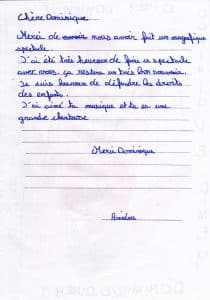 Chère Dominique
Merci de nous avoir fait un magnifique
spectacle.
J'ai été très heureux de faire ce spectacle
avec vous. ça restera un très bon souvenir.
Je suis heureux de défendre les droits
des enfants.
J'ai aimé ta musique et tu es une
grande chanteuse
Merci Dominique